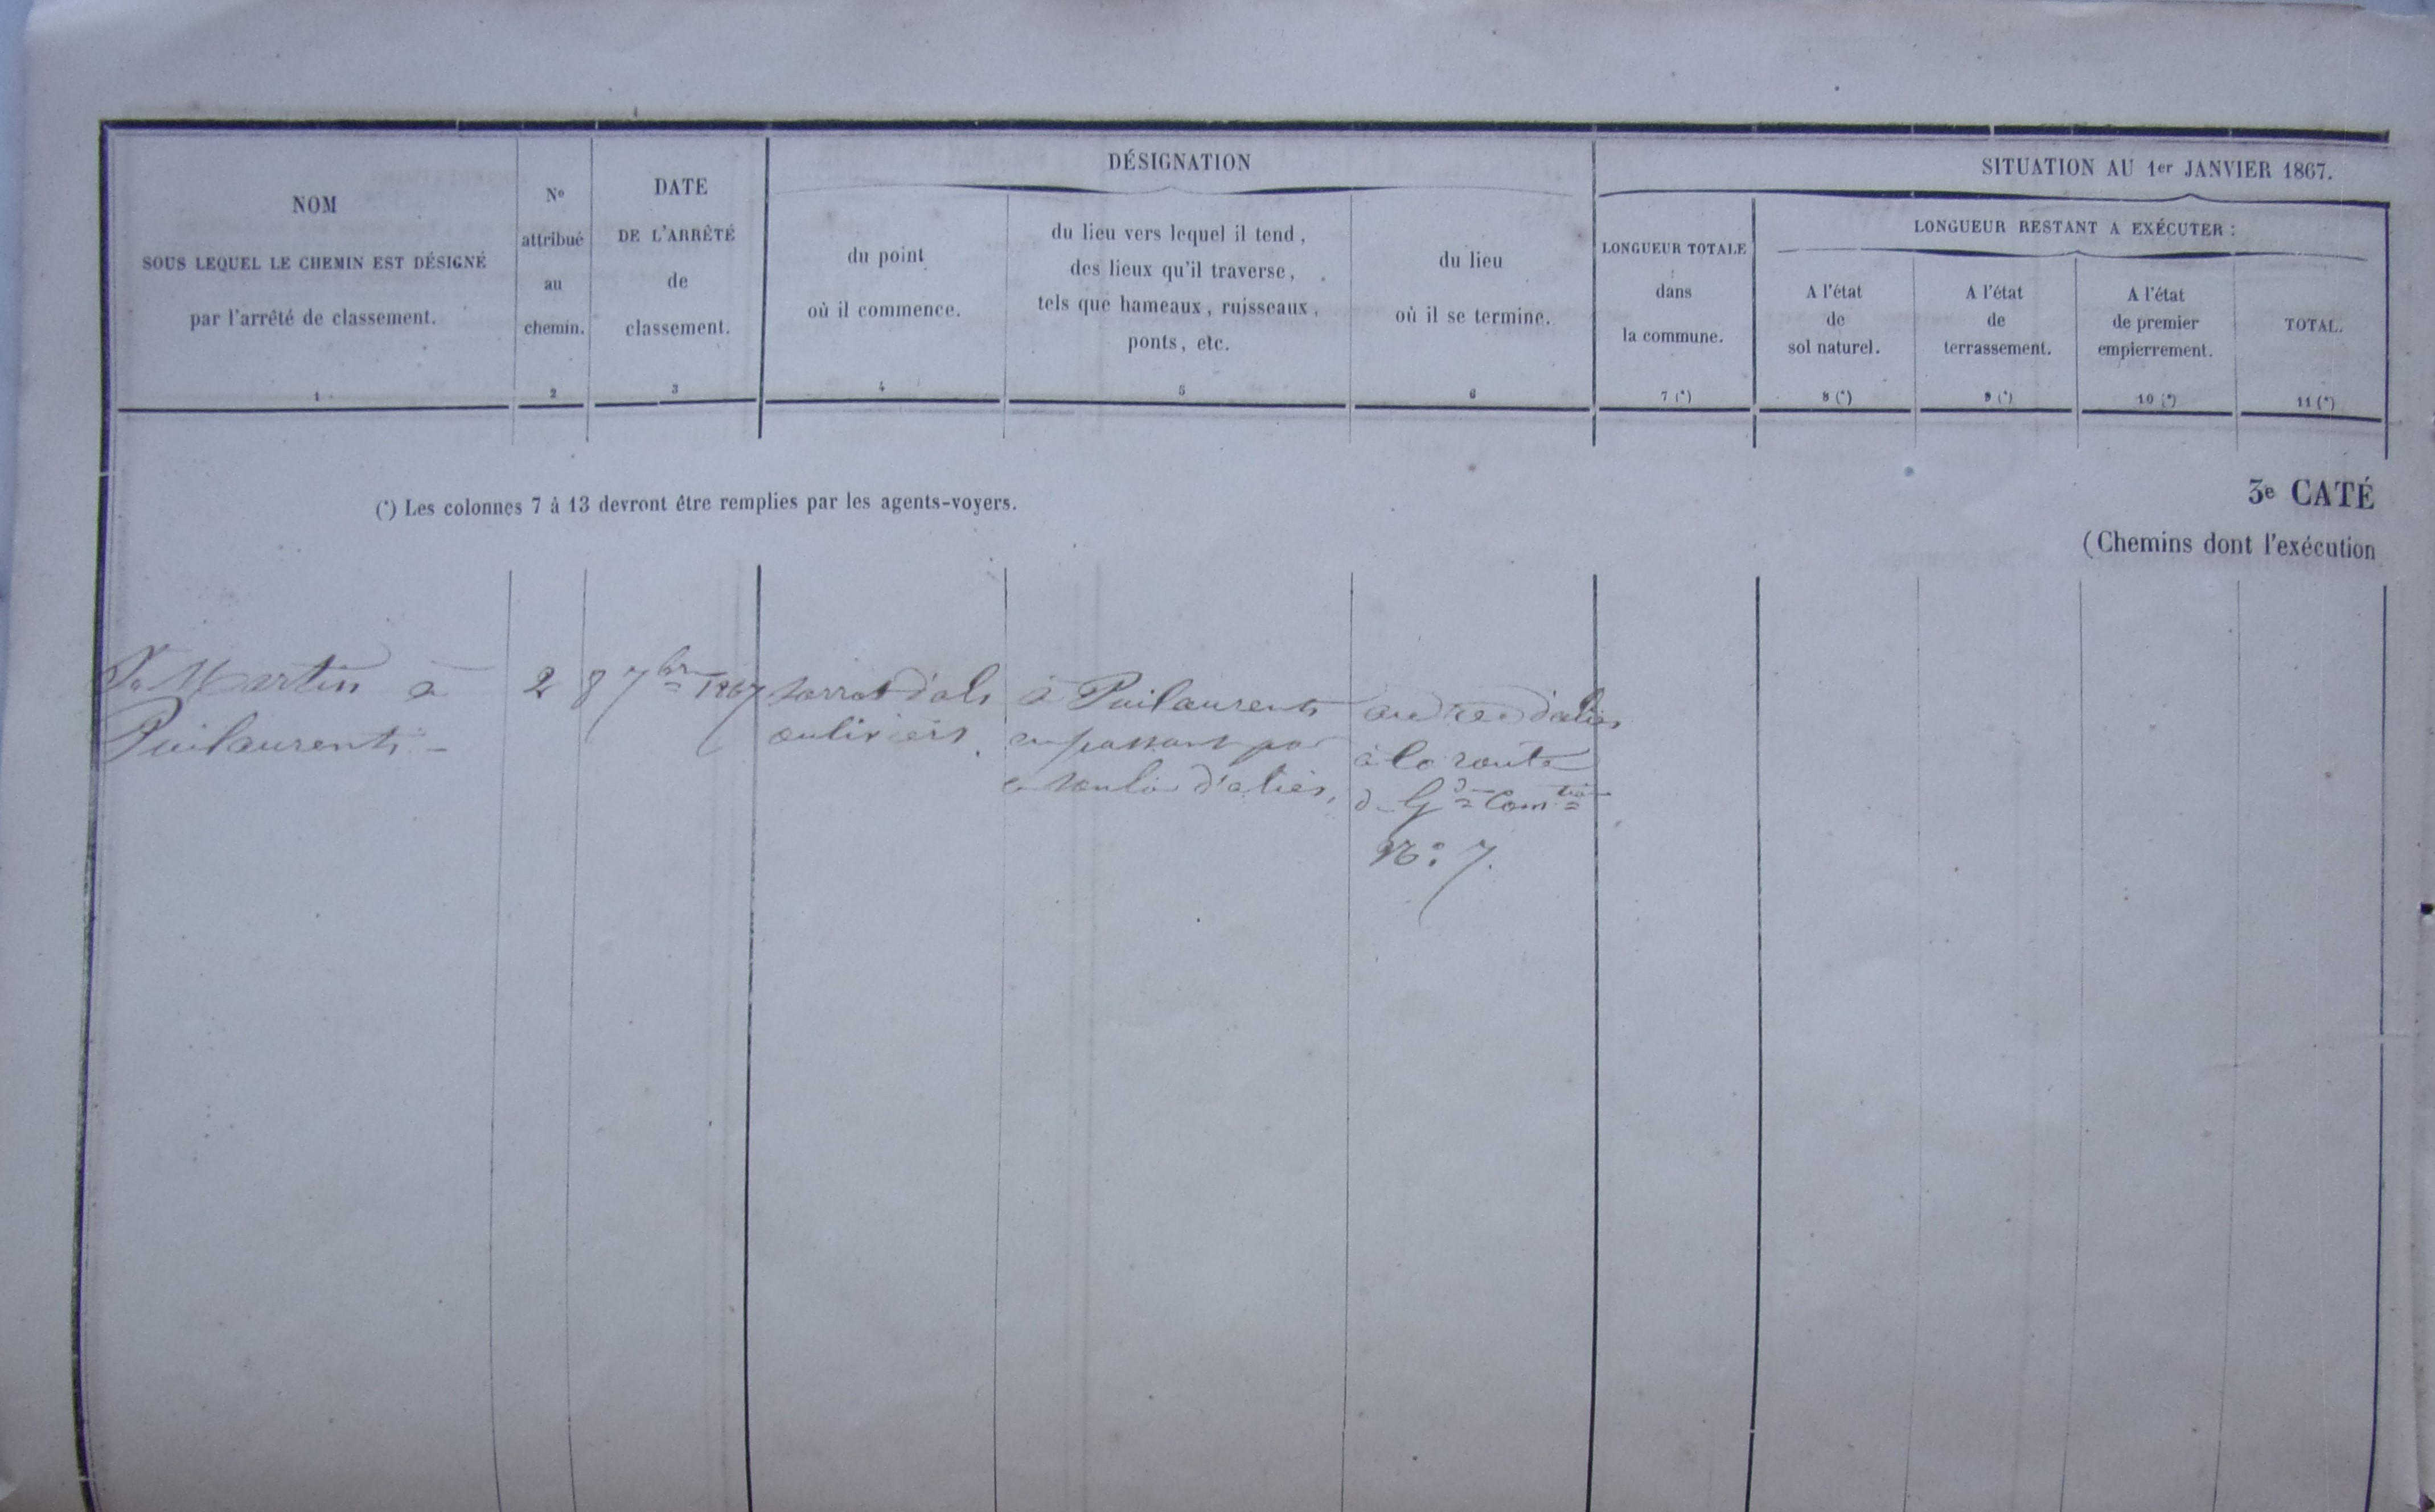 DÉSIGNATION
SITUATION AU 1er JANVIER 1867.
NOM
SOUS LEQUEL LE CHEMIN EST DÉSIGNÉ
par l'arrêté de classement.
1
No
attribué
au
chemin.
2
DATE
DE L'ARRÊTÉ
de
classement.
3
du point
où il commence.
4
du lieu vers lequel il tend,
des lieux qu'il traverse,
tels que hameaux, ruisseaux,
ponts, etc.
5
du lieu
où il se termine.
6
LONGUEUR TOTALE
dans
la commune.
7 (*)
LONGUEUR RESTANT A EXÉCUTER :
A l'état
de
sol naturel.
8 (*)
A l'état
de
terrassement.
9 (*)
A l'état
de premier
empierrement.
10 (*)
TOTAL.
11 (*)
(*) Les colonnes 7 à 13 devront être remplies par les agents-voyers.
3e CATÉ
(Chemins dont l'exécution
St Martin à
Puilaurens -
2
8 7bre 1867
sarrat d'als
ouliviers.
à Puilaurens
en passant par
moulin d'aliès,
d'aliès
à la route
de Gde Comtion
No: 7.